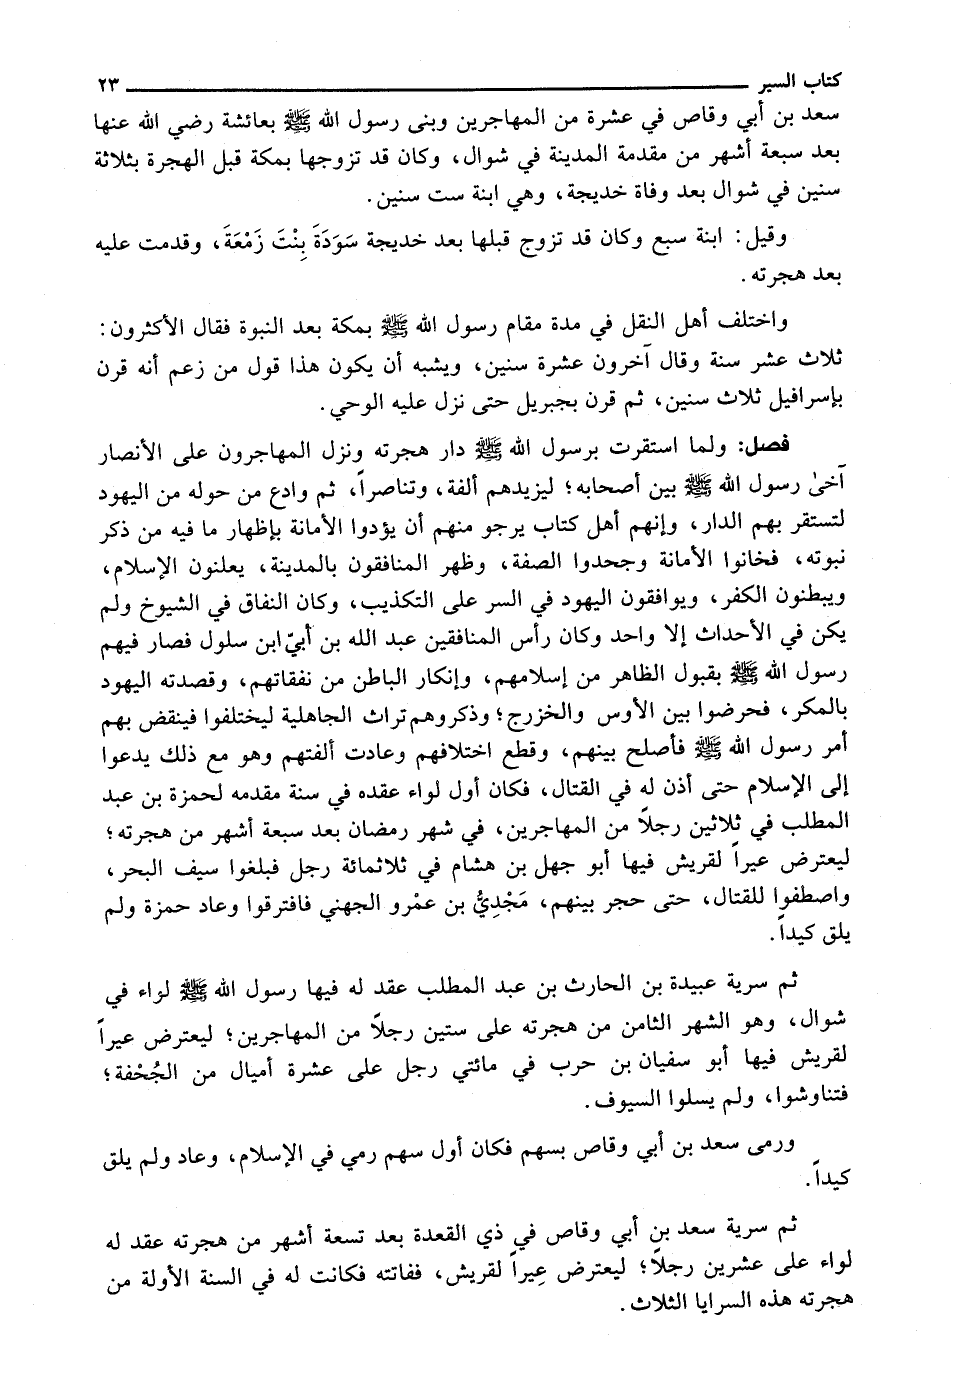 كتاب السير ٢٣
سعد بن أبي وقاص في عشرة من المهاجرين وبنى رسول الله ﷺ بعائشة رضي الله عنها
بعد سبعة أشهر من مقدمة المدينة في شوال، وكان قد تزوجها بمكة قبل الهجرة بثلاثة
سنين في شوال بعد وفاة خديجة، وهي ابنة ست سنين.
وقيل: ابنة سبع وكان قد تزوج قبلها بعد خديجة سَوَدَةَ بِنْتَ زَمْعَةَ، وقدمت عليه
بعد هجرته.
واختلف أهل النقل في مدة مقام رسول الله ﷺ بمكة بعد النبوة فقال الأكثرون:
ثلاث عشر سنة وقال آخرون عشرة سنين، ويشبه أن يكون هذا قول من زعم أنه قرن
بإسرافيل ثلاث سنين، ثم قرن بجبريل حتى نزل عليه الوحي.
فصل: ولما استقرت برسول الله ﷺ دار هجرته ونزل المهاجرون على الأنصار
آخىٰ رسول الله ﷺ بين أصحابه؛ ليزيدهم ألفة، وتناصراً، ثم وادع من حوله من اليهود
لتستقر بهم الدار، وإنهم أهل كتاب يرجو منهم أن يؤدوا الأمانة بإظهار ما فيه من ذكر
نبوته، فخانوا الأمانة وجحدوا الصفة، وظهر المنافقون بالمدينة، يعلنون الإسلام،
ويبطنون الكفر، ويوافقون اليهود في السر على التكذيب، وكان النفاق في الشيوخ ولم
يكن في الأحداث إلا واحد وكان رأس المنافقين عبد الله بن أبيّ ابن سلول فصار فيهم
رسول الله ﷺ بقبول الظاهر من إسلامهم، وإنكار الباطن من نفقاتهم، وقصدته اليهود
بالمكر، فحرضوا بين الأوس والخزرج؛ وذكروهم تراث الجاهلية ليختلفوا فينقض بهم
أمر رسول الله ﷺ فأصلح بينهم، وقطع اختلافهم وعادت ألفتهم وهو مع ذلك يدعوا
إلى الإسلام حتى أذن له في القتال، فكان أول لواء عقده في سنة مقدمه لحمزة بن عبد
المطلب في ثلاثين رجلاً من المهاجرين، في شهر رمضان بعد سبعة أشهر من هجرته؛
ليعترض عيراً لقريش فيها أبو جهل بن هشام في ثلاثمائة رجل فبلغوا سيف البحر،
واصطفوا للقتال، حتى حجر بينهم، مَجْدِيُّ بن عمْرو الجهني فافترقوا وعاد حمزة ولم
يلق كيداً.
ثم سرية عبيدة بن الحارث بن عبد المطلب عقد له فيها رسول الله ﷺ لواء في
شوال، وهو الشهر الثامن من هجرته على ستين رجلاً من المهاجرين؛ ليعترض عيراً
لقريش فيها أبو سفيان بن حرب في مائتي رجل على عشرة أميال من الجُحْفة؛
فتناوشوا، ولم يسلوا السيوف.
ورمى سعد بن أبي وقاص بسهم فكان أول سهم رمي في الإسلام، وعاد ولم يلق
كيداً.
ثم سرية سعد بن أبي وقاص في ذي القعدة بعد تسعة أشهر من هجرته عقد له
لواء على عشرين رجلاً؛ ليعترض عِيراً لقريش، ففاتته فكانت له في السنة الأولة من
هجرته هذه السرايا الثلاث.